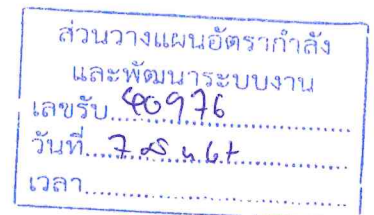 ส่วนวางแผนอัตรากำลัง
และพัฒนาระบบงาน
เลขรับ 40976
วันที่ 7
เวลา